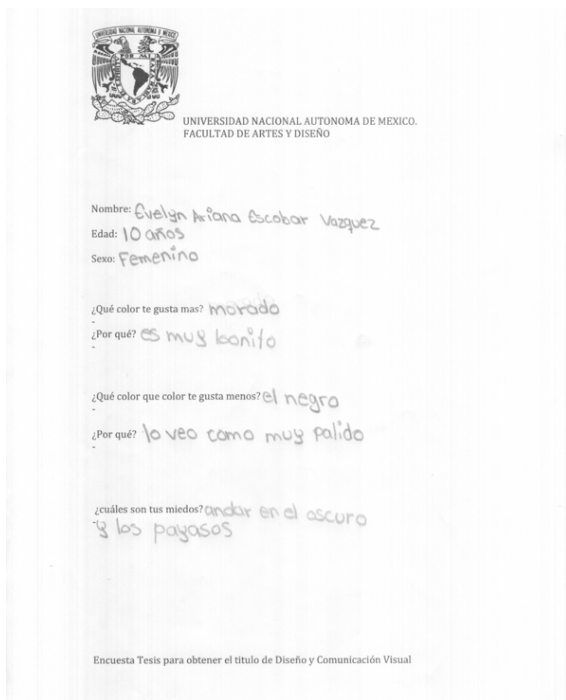 UNIVERSIDAD NACIONAL AUTONOMA DE MEXICO.
FACULTAD DE ARTES Y DISEÑO
Nombre: Evelyn Ariana Escobar Vazquez
Edad: 10 años
Sexo: Femenino
¿Qué color te gusta mas? morado
¿Por qué? es muy bonito
¿Qué color que color te gusta menos? el negro
¿Por qué? lo veo como muy palido
¿cuáles son tus miedos? andar en el oscuro
y los payasos
Encuesta Tesis para obtener el titulo de Diseño y Comunicación Visual